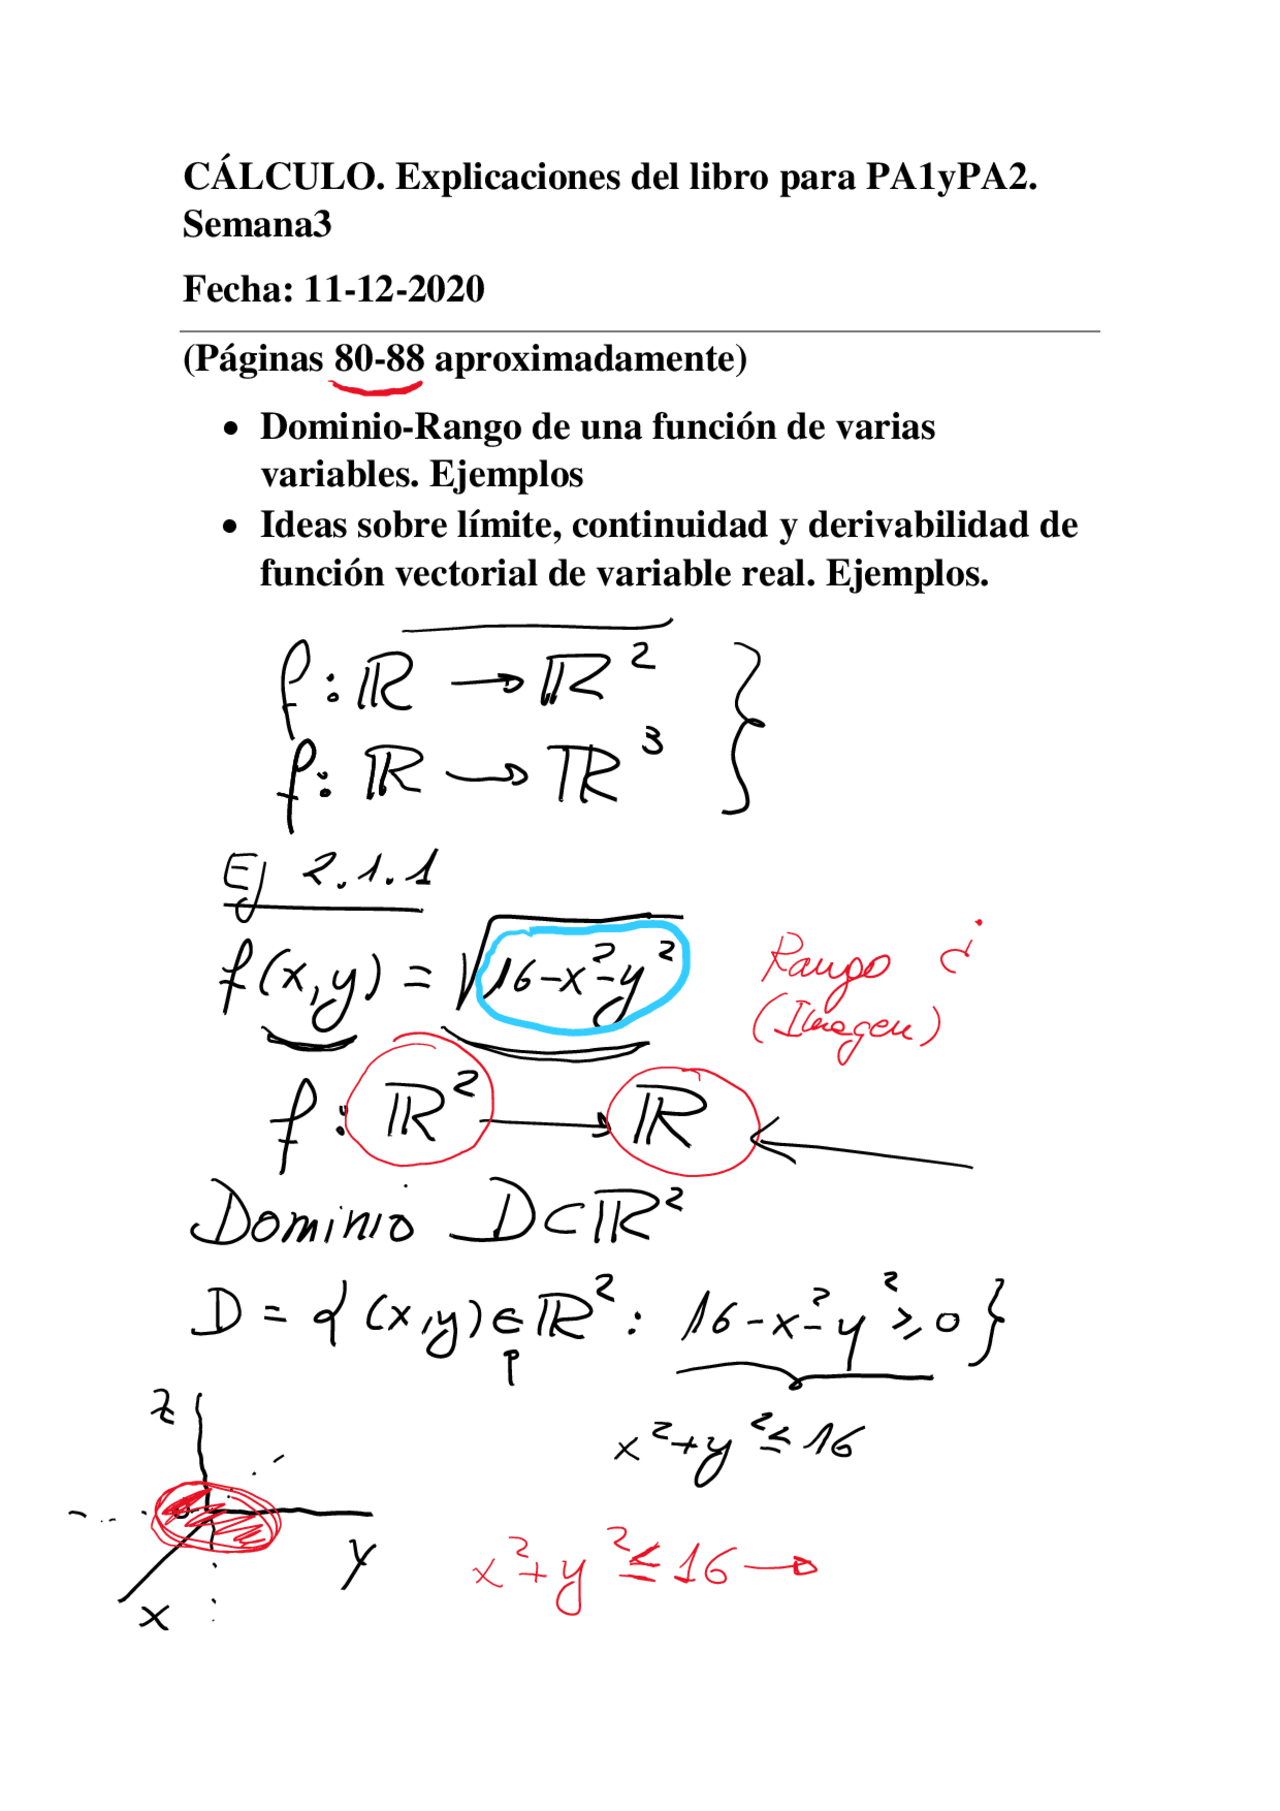 CÁLCULO. Explicaciones del libro para PA1yPA2.
Semana3
Fecha: 11-12-2020
(Páginas 80-88 aproximadamente)
• Dominio-Rango de una función de varias
variables. Ejemplos
• Ideas sobre límite, continuidad y derivabilidad de
función vectorial de variable real. Ejemplos.
f: ℝ → ℝ² }
f: ℝ → ℝ³
Ej 2.1.1
f(x,y) = √16-x²-y²
Rango
(Imagen)
f: ℝ² → ℝ
Dominio D⊂ℝ²
D = {(x,y)∈ℝ²: 16-x²-y² ≥ 0}
z
x²+y² ≤ 16
y
x²+y² ≤ 16 →
x